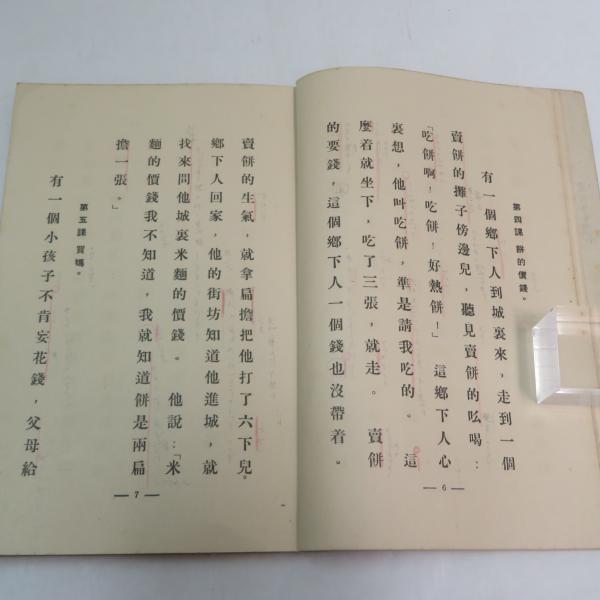 第四課 餅的價錢。
有一個鄉下人到城裏來，走到一個
賣餅的攤子傍邊兒，聽見賣餅的吆喝：
「吃餅啊！吃餅！好熱餅！」這鄉下人心
裏想，他叫吃餅，準是請我吃的。這
麼着就坐下，吃了三張，就走。賣餅
的要錢，這個鄉下人一個錢也沒帶着。
— 6 —
賣餅的生氣，就拿扁擔把他打了六下兒。
鄉下人回家，他的街坊知道他進城，就
找來問他城裏米麵的價錢。他說：「米
麵的價錢我不知道，我就知道餅是兩扁
擔一張。」
第五課 買
有一個小孩子不肯妄花錢，父母給
— 7 —